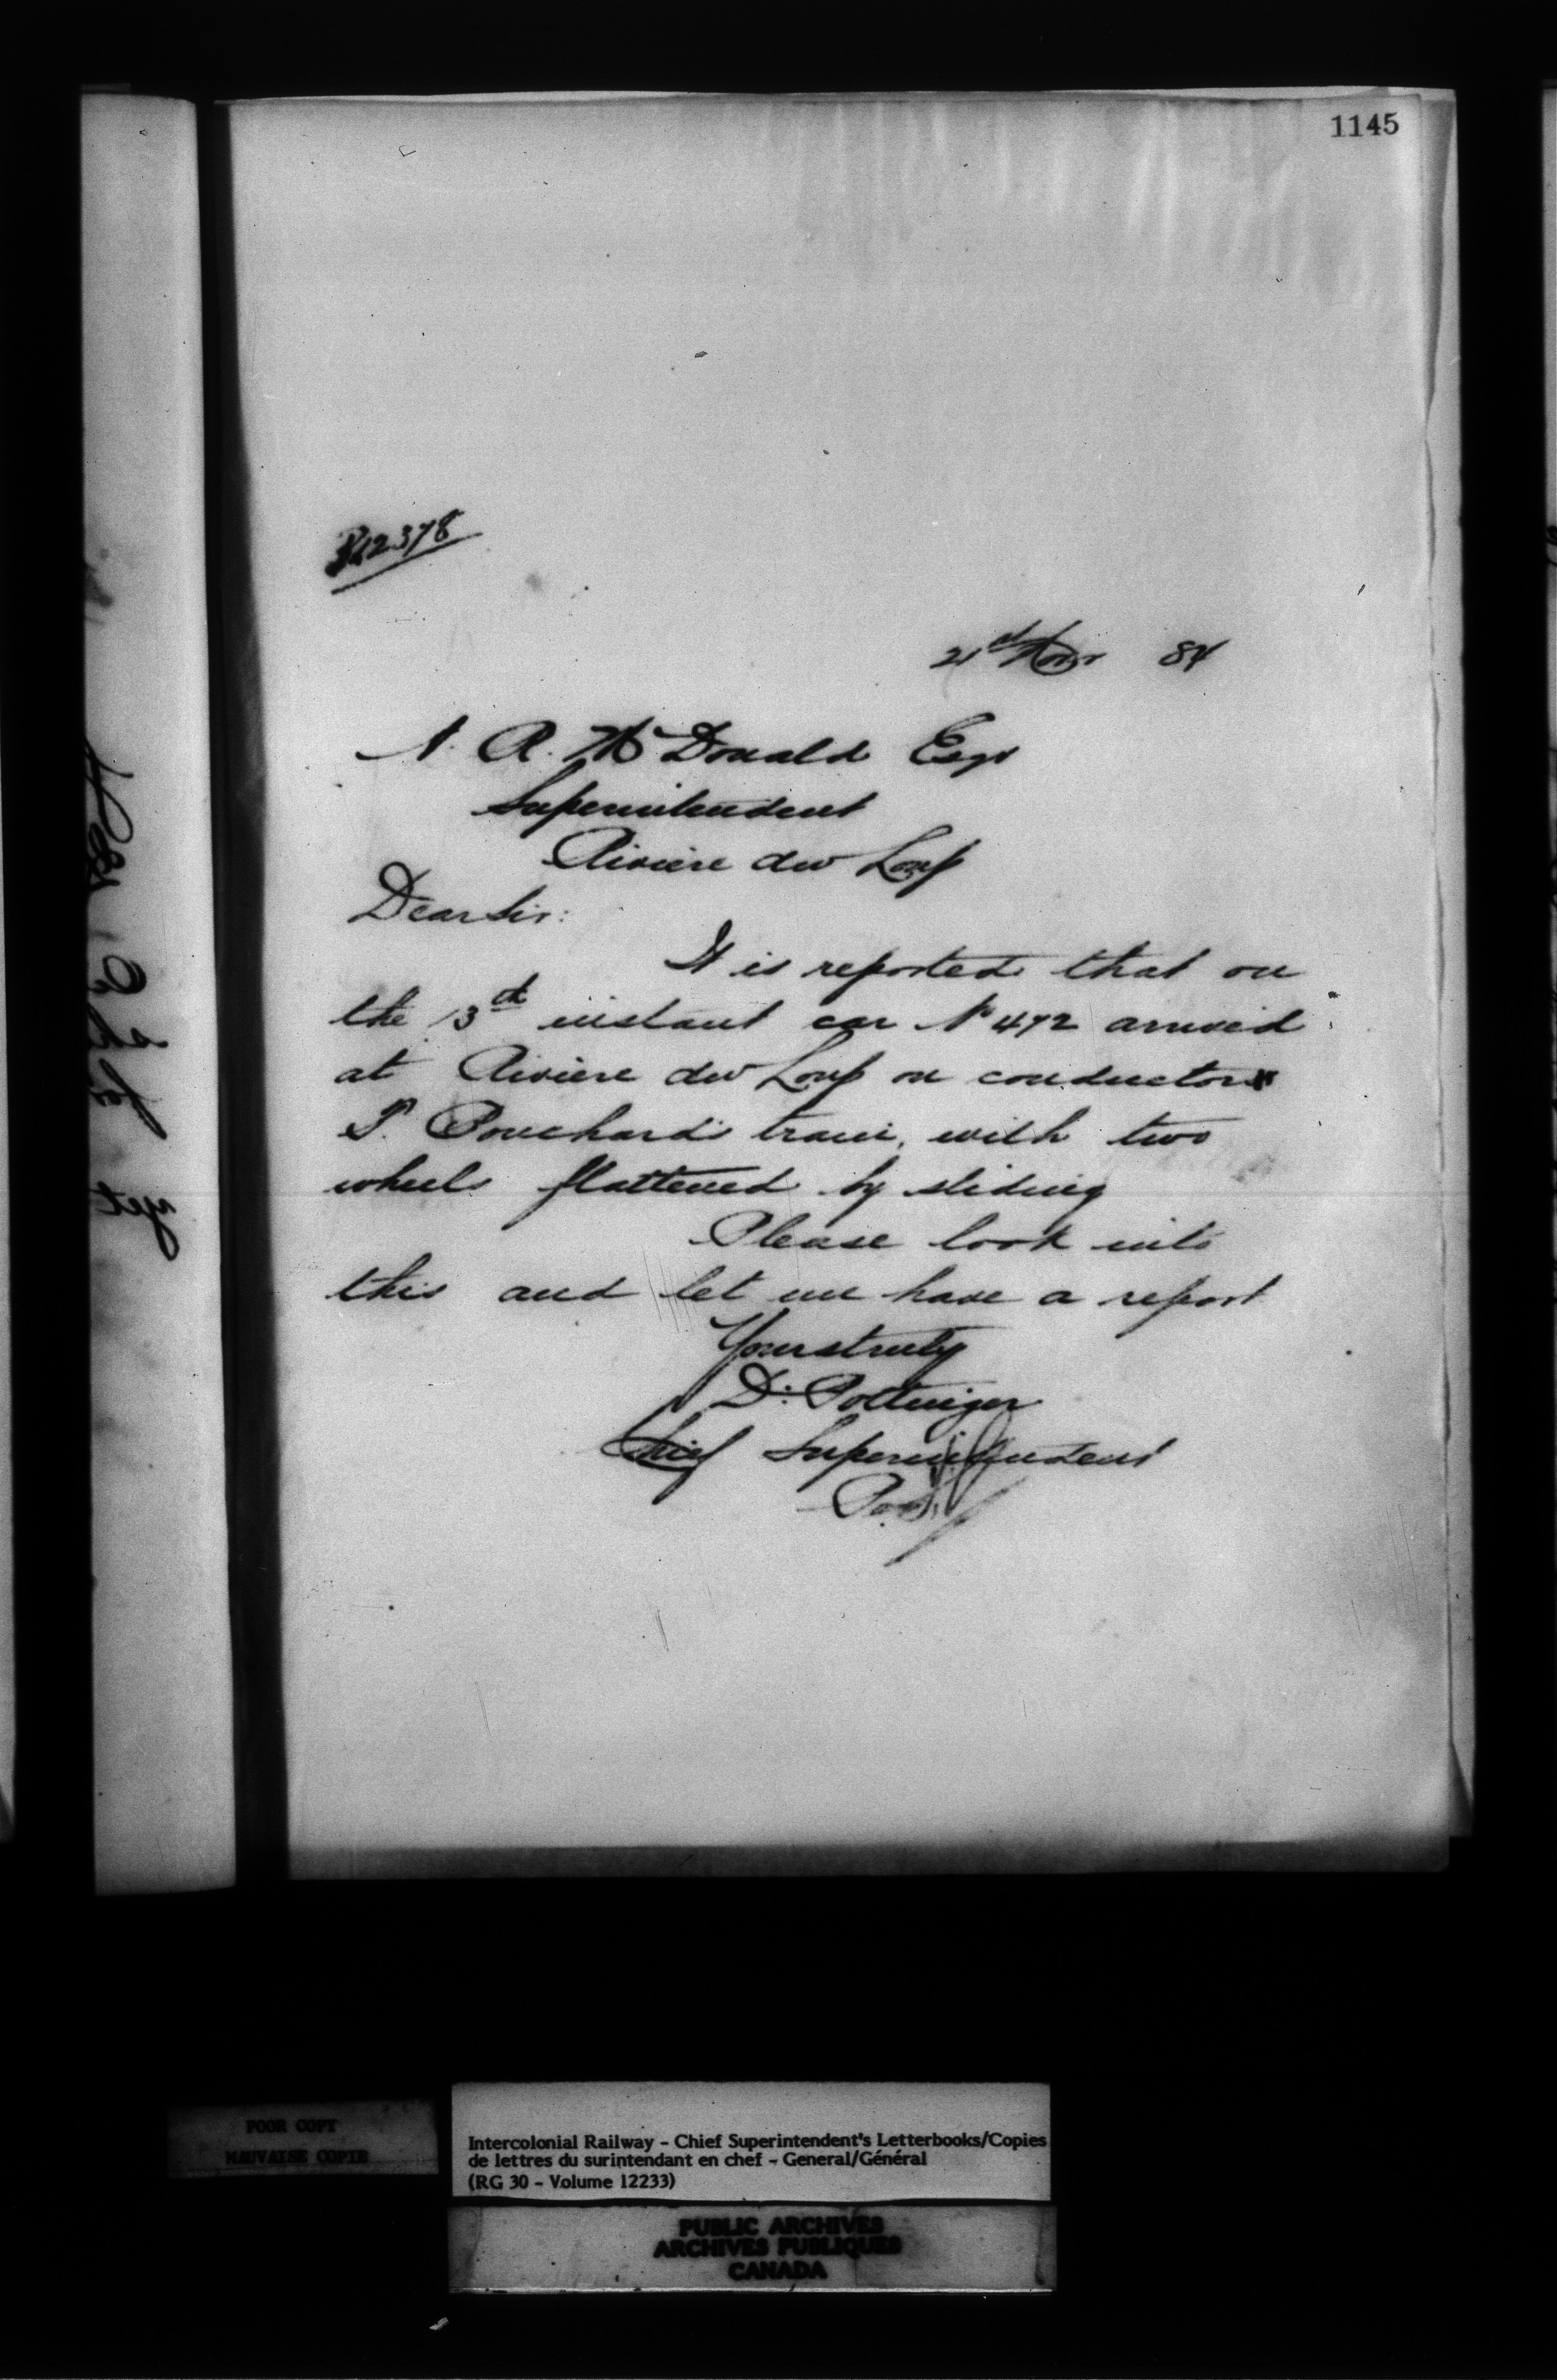 1145
21st Nov 84
A. R. McDonald Esqr
Superintendent
Riviere du Loup
Dear Sir:
It is reported that on
the 13th instant car No 472 arrived
at Riviere du Loup on conductor
P. Bouchard's train, with two
wheels flattened by sliding
Please look into
this and let me have a report
Yours truly
D. Pottinger
Chief Superintendent
POOR COPY
MAUVAISE COPIE
Intercolonial Railway - Chief Superintendent's Letterbooks/Copies
de lettres du surintendant en chef - General/Général
(RG 30 - Volume 12233)
PUBLIC ARCHIVES
ARCHIVES PUBLIQUES
CANADA